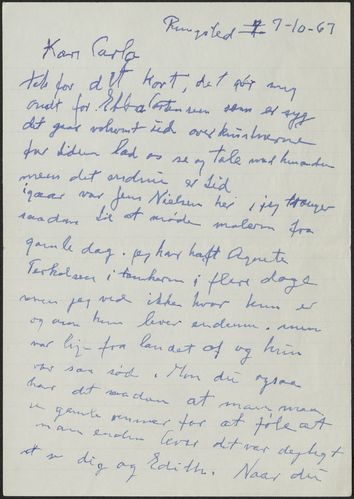 Ringsted 7-10-67
Kære Carlo
tak for dit kort, det gør mig
ondt for Ebba Carstensen som er syg
det gaar voldsomt ud over kunstnerne
for tiden lad os se og tale med hinanden
mens det endnu er tid
igaar var Jens Nielsen her, jeg trænger
saadan til at møde malerne fra
gamle dage. jeg har haft Agnete
Therkelsen i tankerne i flere dage
men jeg ved ikke hvor hun er
og om hun lever endnu. men
var lige fra landet af og hun
var saa sød. Mon du ogsaa
har det saadan at man maa
se gamle venner for at føle at
man endnu lever det var dejligt
at se dig og Edith. Naar du